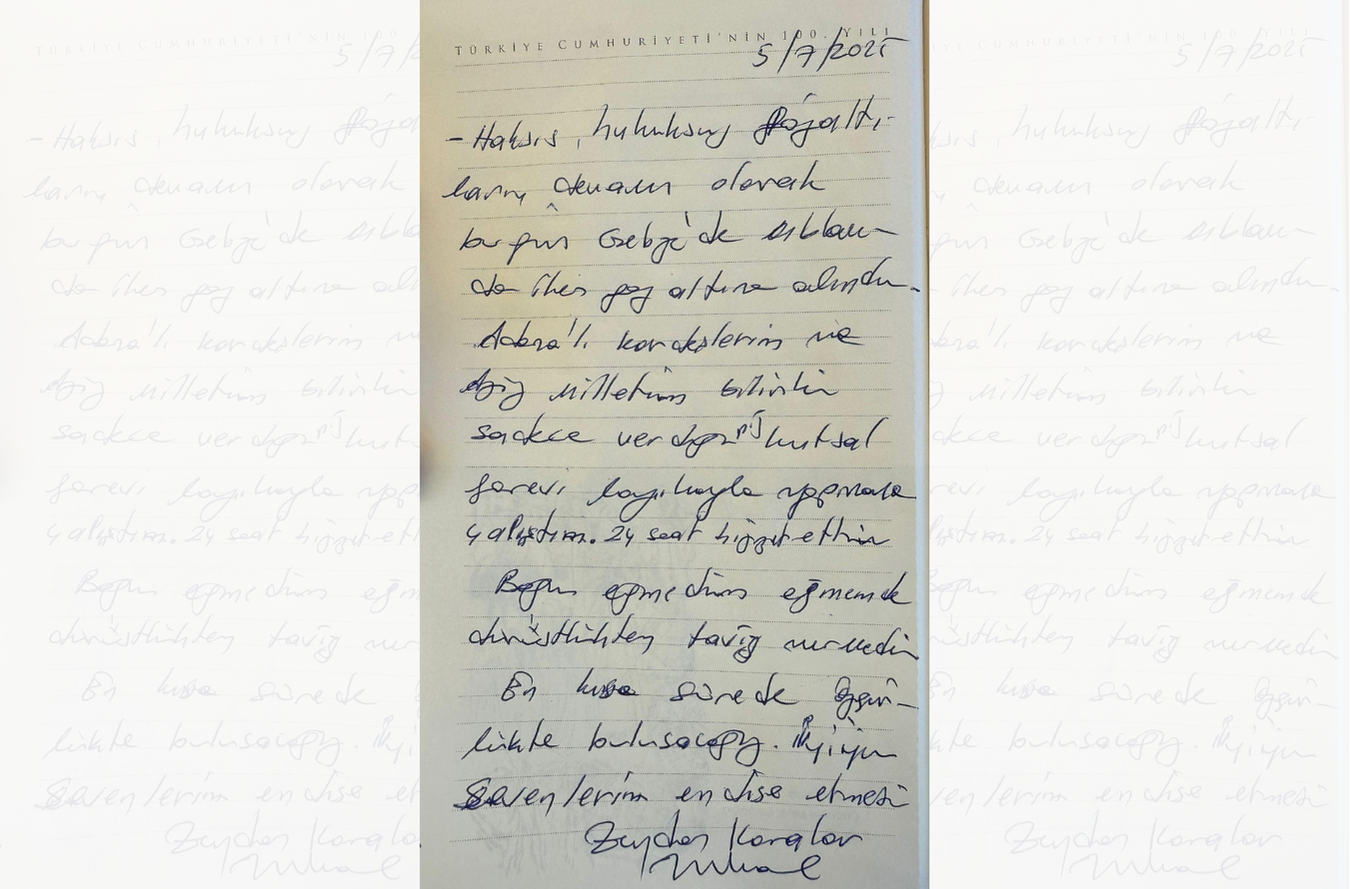 TÜRKİYE CUMHURİYETİ'NİN 100. YILI
5/7/2025
- Haksız, hukuksuz gözaltı-
ların devamı olarak
bugün Gebze'de
göz altına alındım.
Adana'lı kardeşlerim ve
aziz milletim bilsin ki
sadece verdiğiniz kutsal
görevi layıkıyla yapmaya
çalıştım. 24 saat hizmet ettim
Boyun eğmedim eğmem de
dürüstlükten taviz vermedim
En kısa sürede özgür-
lükte buluşacağız. İyiyim
Sevenlerim endişe etmesin
Zeydan Karalar